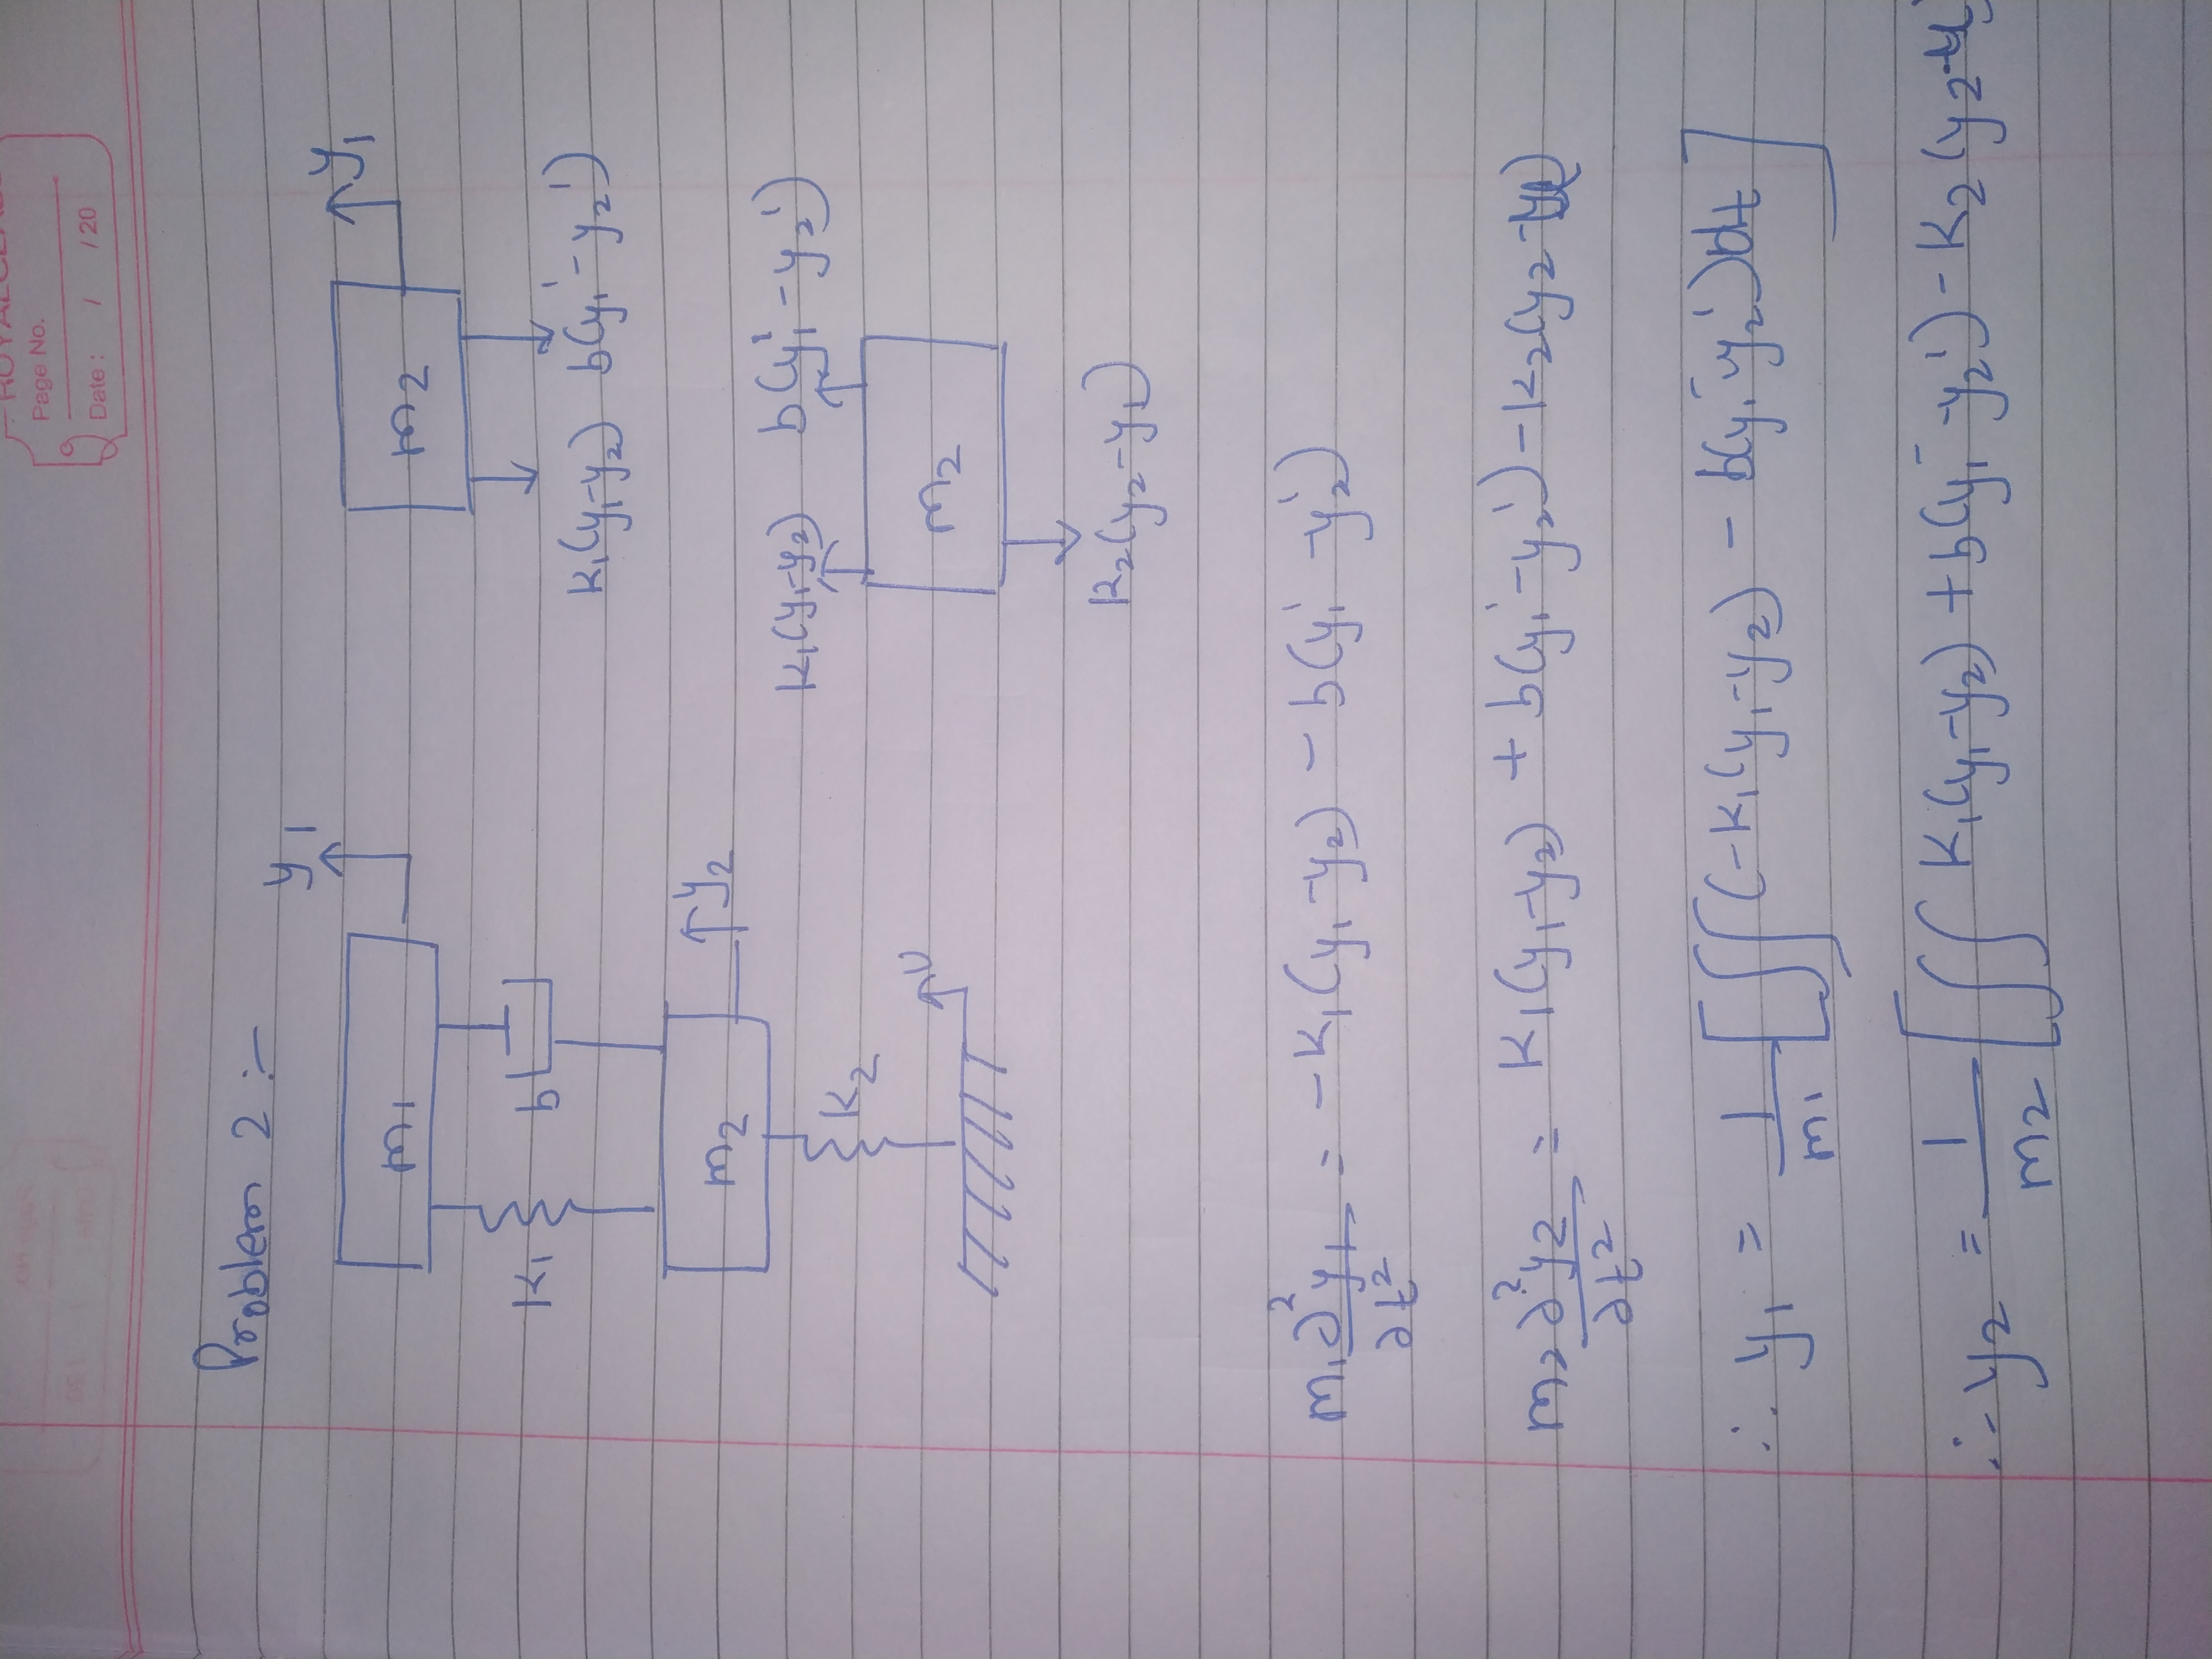 Page No.
Date : / /20
Problem 2 :-
y1
m1
K1
b
m2
y2
K2
U
m2
y1
K1(y1-y2) b(y1' - y2')
K1(y1-y2) b(y1' - y2')
m2
K2(y2-y1)
m1 ∂²y1/∂t² = -K1(y1-y2) - b(y1' - y2')
m2 ∂²y2/∂t² = K1(y1-y2) + b(y1' - y2') - K2(y2 -
∴ y1 = 1/m1 [∫∫(-K1(y1-y2) - b(y1' - y2')dt]
∴ y2 = 1/m2 [∫∫ K1(y1-y2) + b(y1' - y2') - K2(y2-